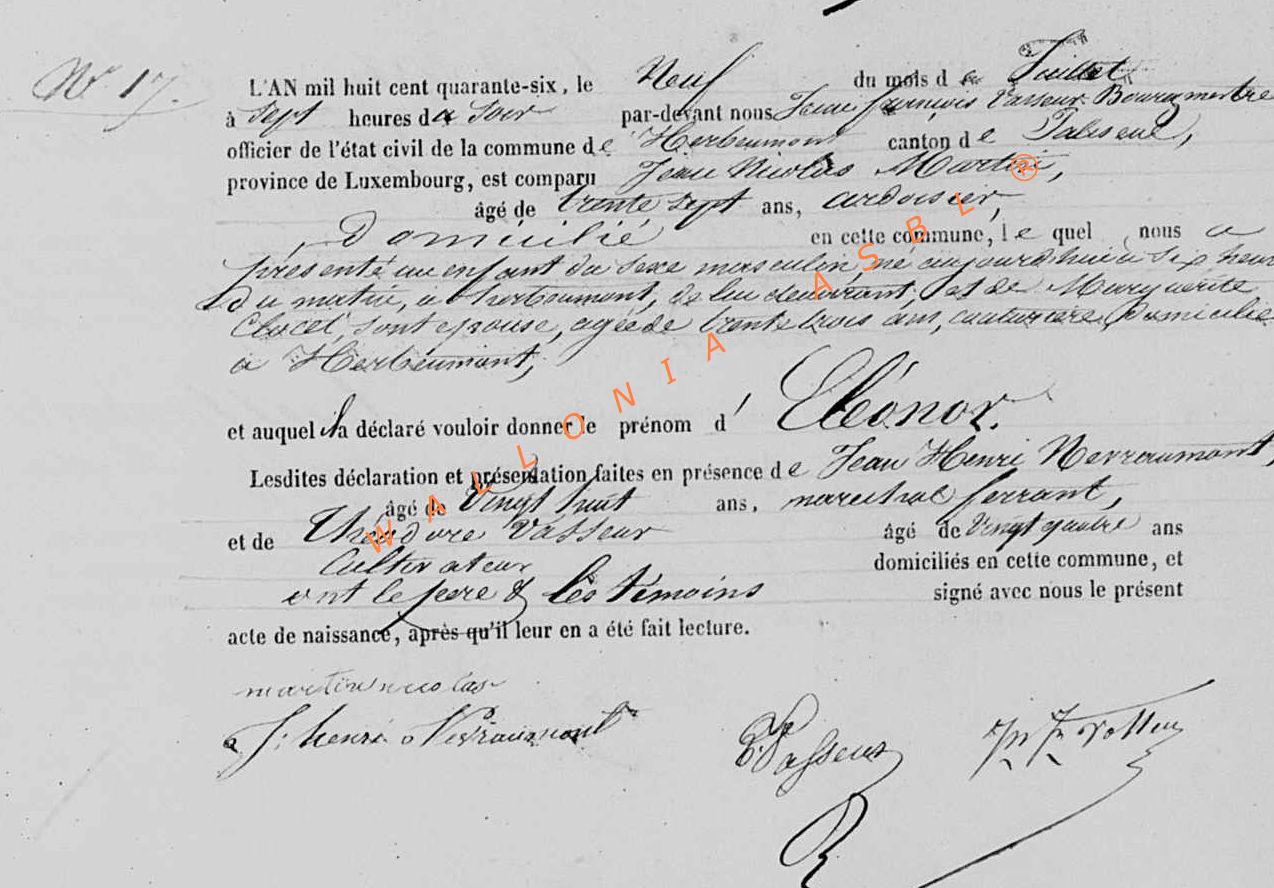 N° 17.
L'AN mil huit cent quarante-six, le Neuf du mois de Juillet,
à Sept heures du Soir par-devant nous Jean françois Vasseur Bourgmestre
officier de l'état civil de la commune de Herbeumont canton de Paliseul,
province de Luxembourg, est comparu Jean Nicolas Martin,
âgé de trente sept ans, ardoisier,
, Domicilié en cette commune, lequel nous a
présenté un enfant du sexe masculin, né aujourdhui à six heures
Du matin, à herbeumont, de lui déclarant, et de Marguérite
sont epouse, agée de trente trois ans, couturière Domicilie
a Herbeumont,
et auquel il a déclaré vouloir donner le prénom d' Eléonor.
Lesdites déclaration et présentation faites en présence de Jean Henri Nevraumont,
âgé de Vingt huit ans, marechal ferrant,
et de Théodore Vasseur âgé de Vingt quatre ans
Cultivateur domiciliés en cette commune, et
ont le pere & les témoins signé avec nous le présent
acte de naissance, après qu'il leur en a été fait lecture.
martin nicolas
J: henri Nevraumont
T. Vasseur
WALLONIA ASBL ®